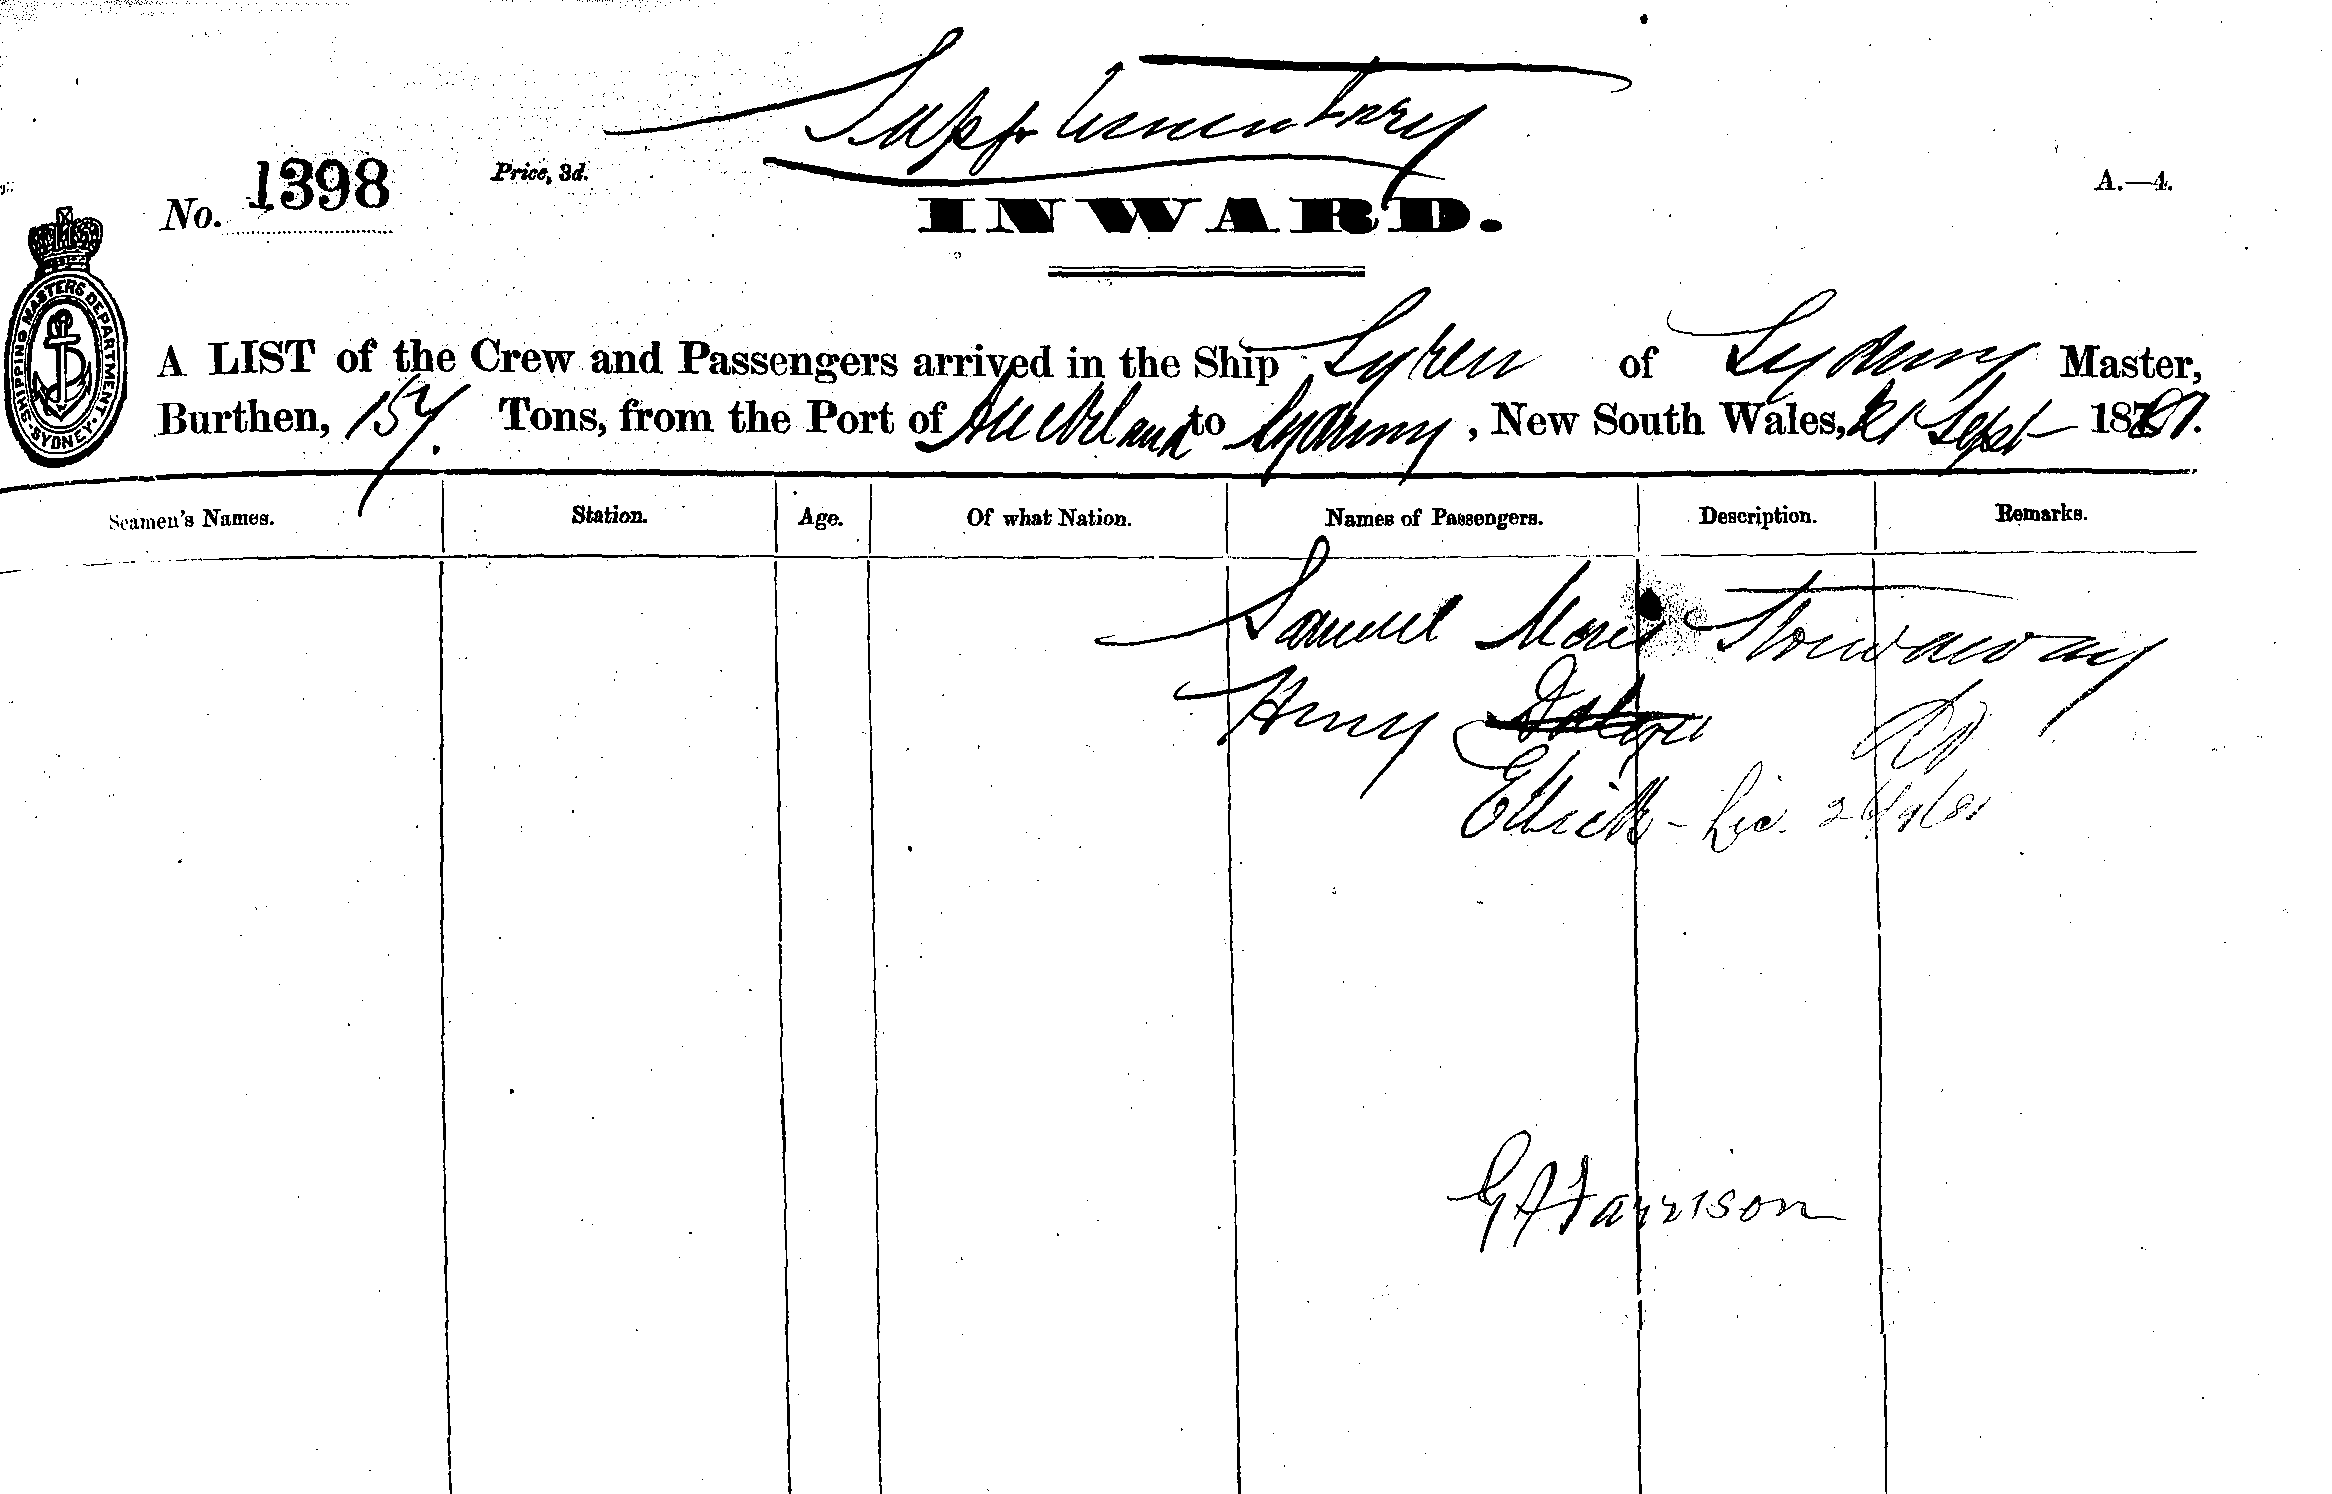 Supplementary
No. 1398 Price, 3d. A.—4.
INWARD.
SHIPPING MASTERS DEPARTMENT. SYDNEY.
A LIST of the Crew and Passengers arrived in the Ship Syren of Sydney Master,
Burthen, 157. Tons, from the Port of Auckland to Sydney, New South Wales, 21 Sept 1881.
Seamen's Names. Station. Age. Of what Nation. Names of Passengers. Description. Remarks.
Samuel Stowaway
Henry Do
Ellicott - Lic. 24/9/81
G Harrison